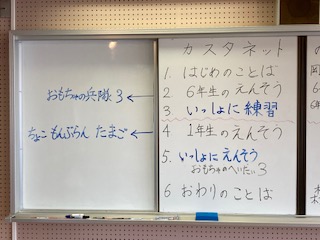 おもちゃの兵隊 3 ←
ちょこ もんぶらん たまご ←
カスタネット
1. はじめのことば
2. 6年生のえんそう
3. いっしょに練習
4. 1年生のえんそう
5. いっしょにえんそう
おもちゃのへいたい 3
6 おわりのことば